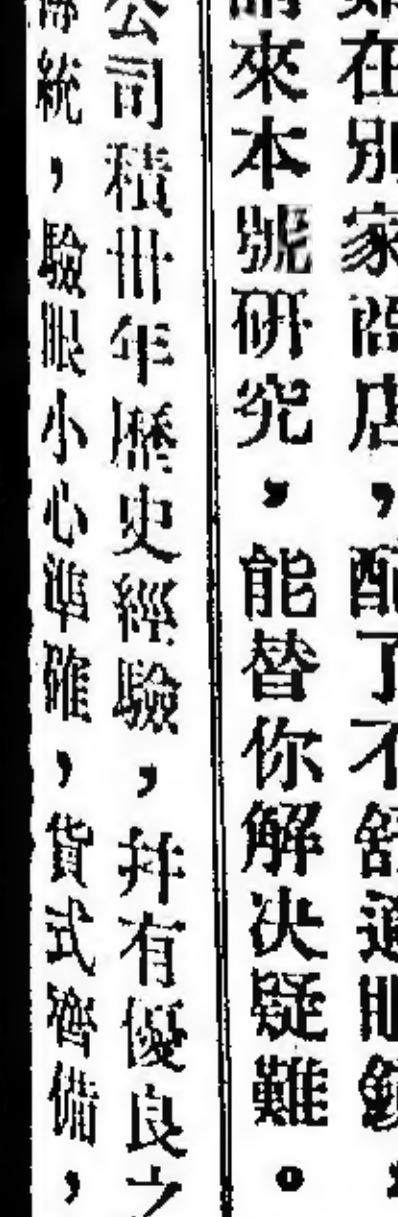 在別家商店，配了不舒適眼鏡，
請來本號研究，能替你解決疑難。
公司積卅年歷史經驗，并有優良之
傳統，驗眼小心準確，貨式齊備，